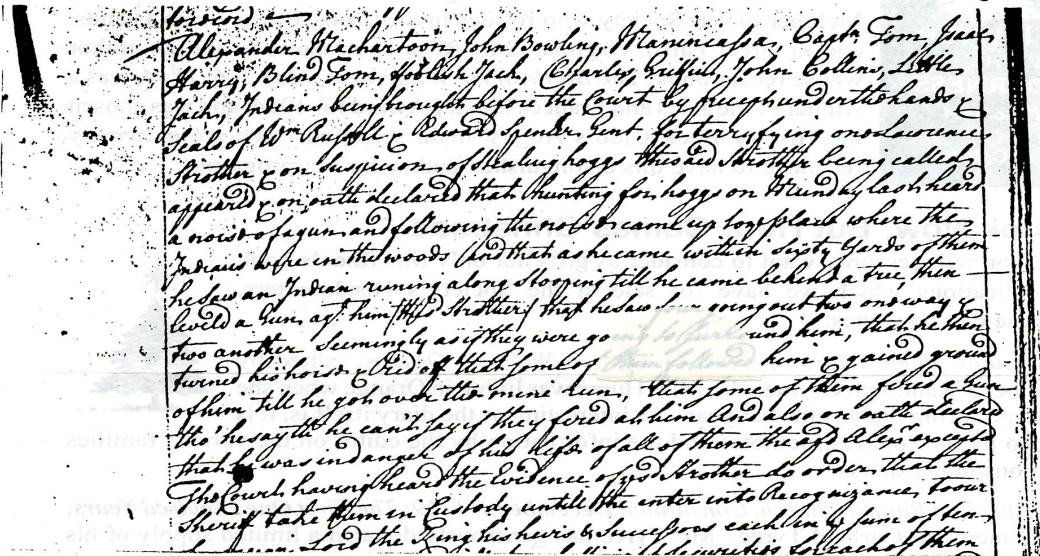 Alexander Machartoon, John Bowling, Manincassa, Captn Tom, Isaac
Harry, Blind Tom, Foolish Jack, Charley Griffin, John Collins, Little
Jack, Indians being brought before the Court by precept under the hands &
Seals of Wm Russell & Edward Spencer Gent. for terryfying one Lawrence
Strother & on suspicion of stealing hoggs the said Strother being called
appeared & on oath declared that hunting for hoggs on Munday last heard
a noise of a gun and following the noise came up to ye place where the
Indians were in the woods (and that as he came within Sixty Yards of them
he saw an Indian runing along stooping till he came behind a tree, then
levild a Gun agt him (the sd Strother) that he saw four going out two one way &
two another Seemingly as if they were go ing to Surro und him, that he then
turned his horse & Rid off that some of them followed him & gained ground
of him till he got over the mine run, that some of them fired a Gun
tho' he says tht he cant say if they fired at him And also on oath declared
that he was in danger of his life of all of them the afd Alexr excepted
The Court having heard the Evidence of ye sd Strother do order that the
Sherif take them in Custody untill the enter into Recognizance to our
Lord the King his heirs & successors each in ye sum of ten